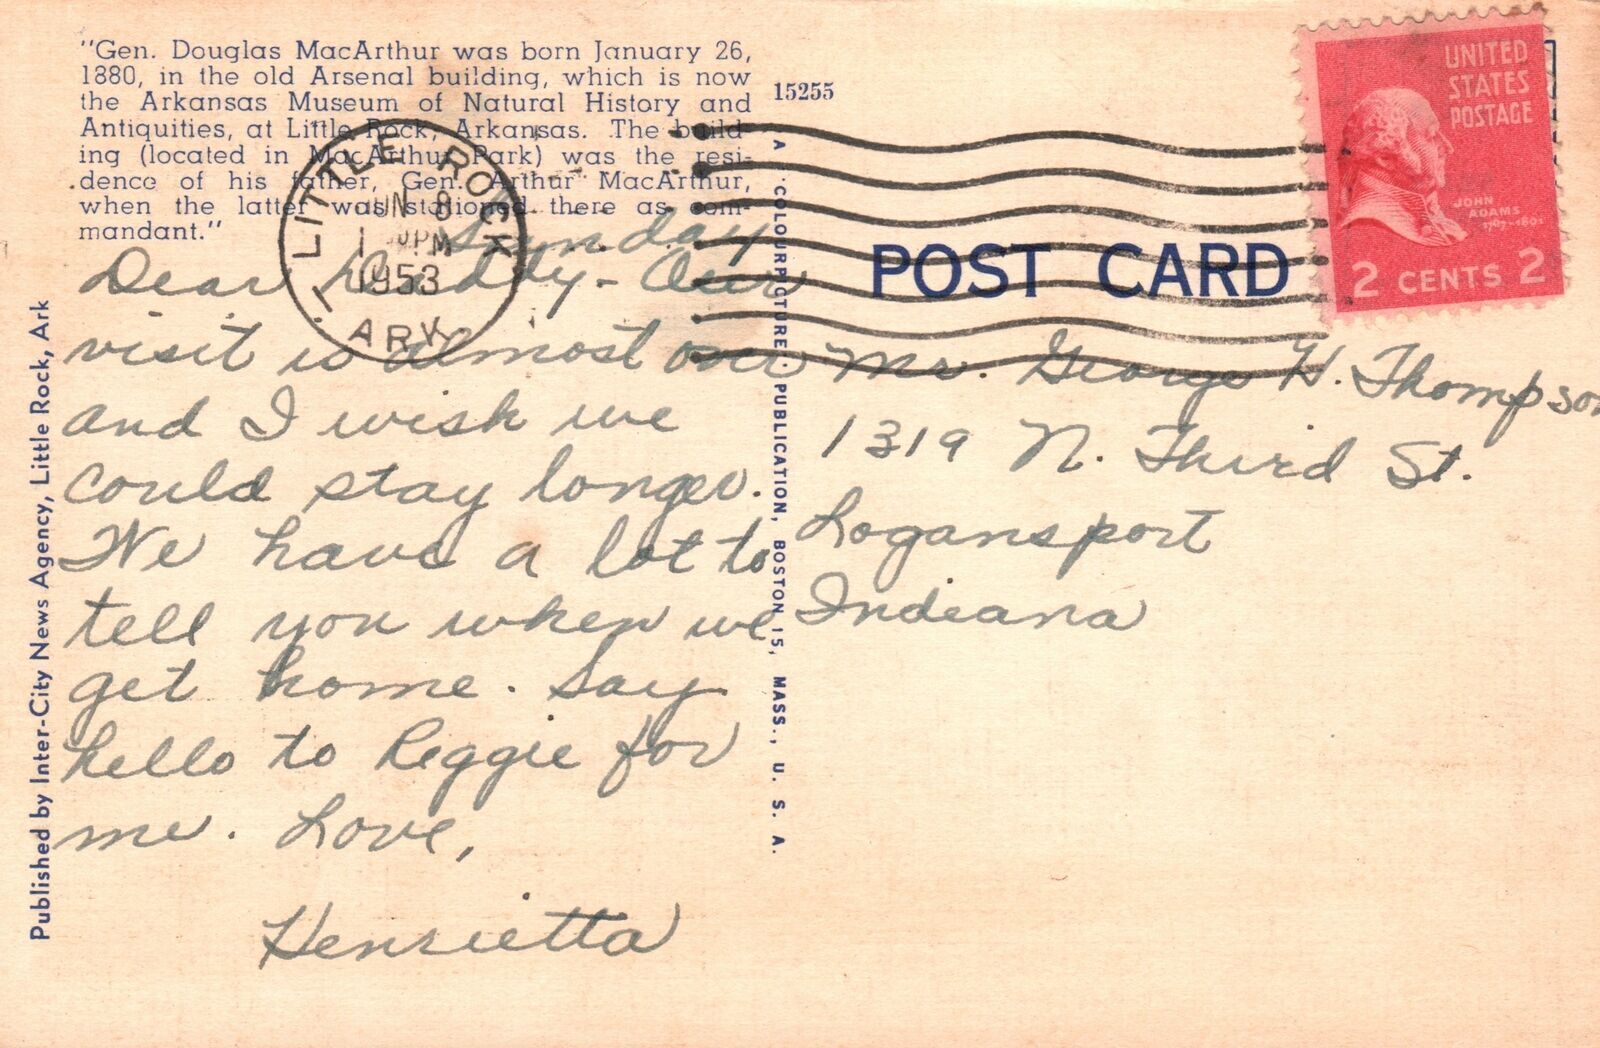 "Gen. Douglas MacArthur was born January 26,
1880, in the old Arsenal building, which is now
the Arkansas Museum of Natural History and
Antiquities, at Little Rock, Arkansas. The build-
ing (located in MacArthur Park) was the resi-
dence of his father, Gen. Arthur MacArthur,
when the latter was stationed there as com-
mandant."
15255
LITTLE ROCK
JUN 8
PM
1953
ARK.
Sunday
Dear Daddy - Our
visit is almost over
and I wish we
could stay longer.
We have a lot to
tell you when we
get home. Say
hello to Reggie for
me. Love,
Henrietta
Published by Inter-City News Agency, Little Rock, Ark
A "COLOURPICTURE" PUBLICATION, BOSTON 15, MASS., U. S. A.
POST CARD
UNITED
STATES
POSTAGE
JOHN
ADAMS
1797-1801
2 CENTS 2
Mr. George H. Thompson
1319 N. Third St.
Logansport
Indiana